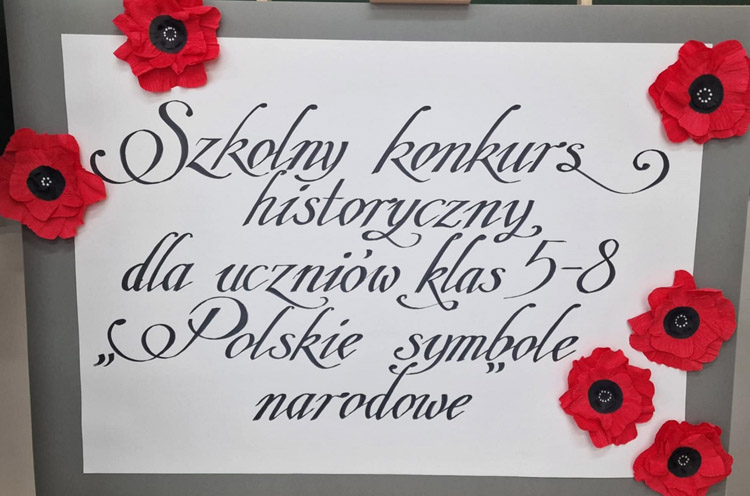 Szkolny konkurs
historyczny
dla uczniów klas 5-8
„Polskie symbole
narodowe”